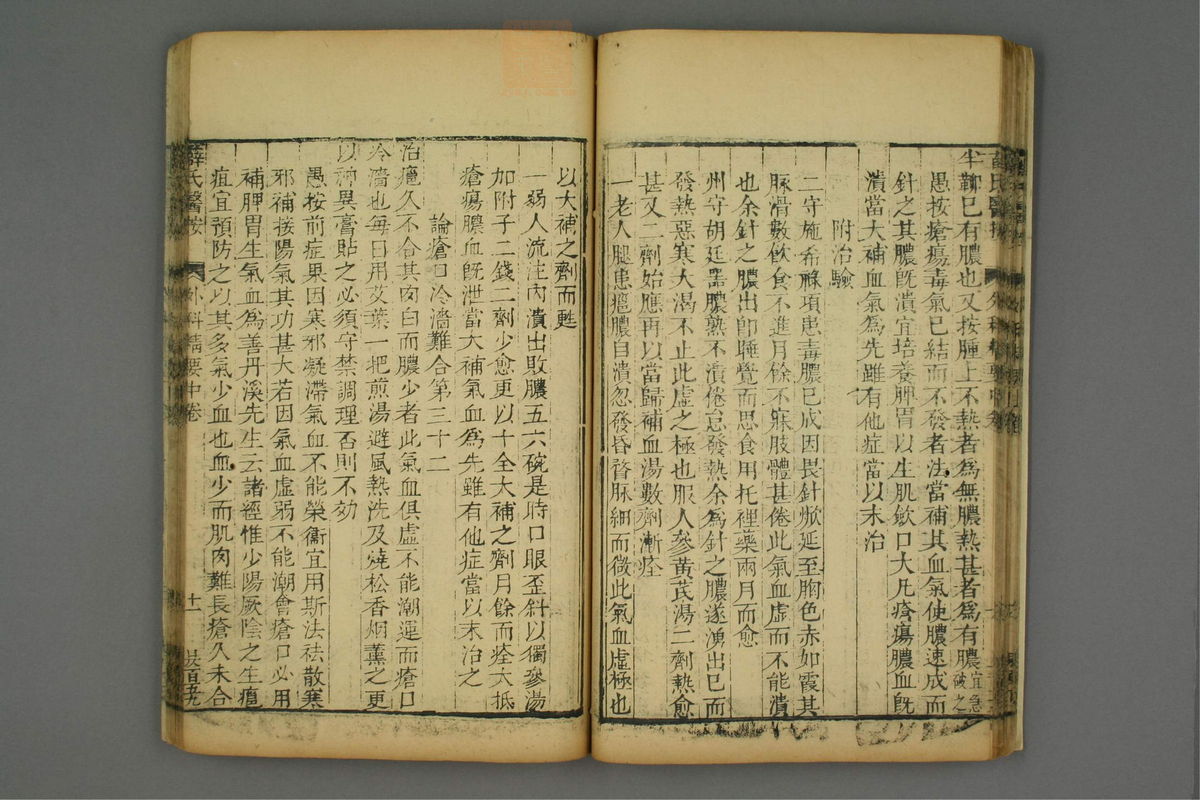 半軟已有膿也又按腫上不熱者為無膿熱甚者為有膿宜急破之
愚按瘡瘍毒氣已結而不發者法當補其血氣使膿速成而
針之其膿既潰宜培養脾胃以生肌歛口大凡瘡瘍膿血既
潰當大補血氣為先雖有他症當以末治
附治驗
二守施希祿項患毒膿已成因畏針焮延至胸色赤如霞其
脉滑數飲食不進月餘不寐肢體甚倦此氣血虛而不能潰
也余針之膿出即睡覺而思食用托裡藥兩月而愈
州守胡廷器膿熟不潰倦怠發熱余為針之膿遂湧出已而
發熱惡寒大渴不止此虛之極也服人參黃芪湯二劑熱愈
甚又二劑始應再以當歸補血湯數劑漸痊
一老人腿患癰膿自潰忽發昏瞀脉細而微此氣血虛極也
以大補之劑而甦
一弱人流注內潰出敗膿五六碗是時口眼歪斜以獨參湯
加附子二錢二劑少愈更以十全大補之劑月餘而痊大抵
瘡瘍膿血既泄當大補氣血為先雖有他症當以末治之
論瘡口冷濇難合第三十二
治癰久不合其肉白而膿少者此氣血俱虛不能潮運而瘡口
冷濇也每日用艾葉一把煎湯避風熱洗及燒松香烟薰之更
以神異膏貼之必須守禁調理否則不効
愚按前症果因寒邪凝滯氣血不能榮衞宜用斯法祛散寒
邪補接陽氣其功甚大若因氣血虛弱不能潮會瘡口必用
補脾胃生氣血為善丹溪先生云諸經惟少陽厥陰之生癰
疽宜預防之以其多氣少血也血少而肌肉難長瘡久未合
薛氏醫按 外科精要中卷 十一